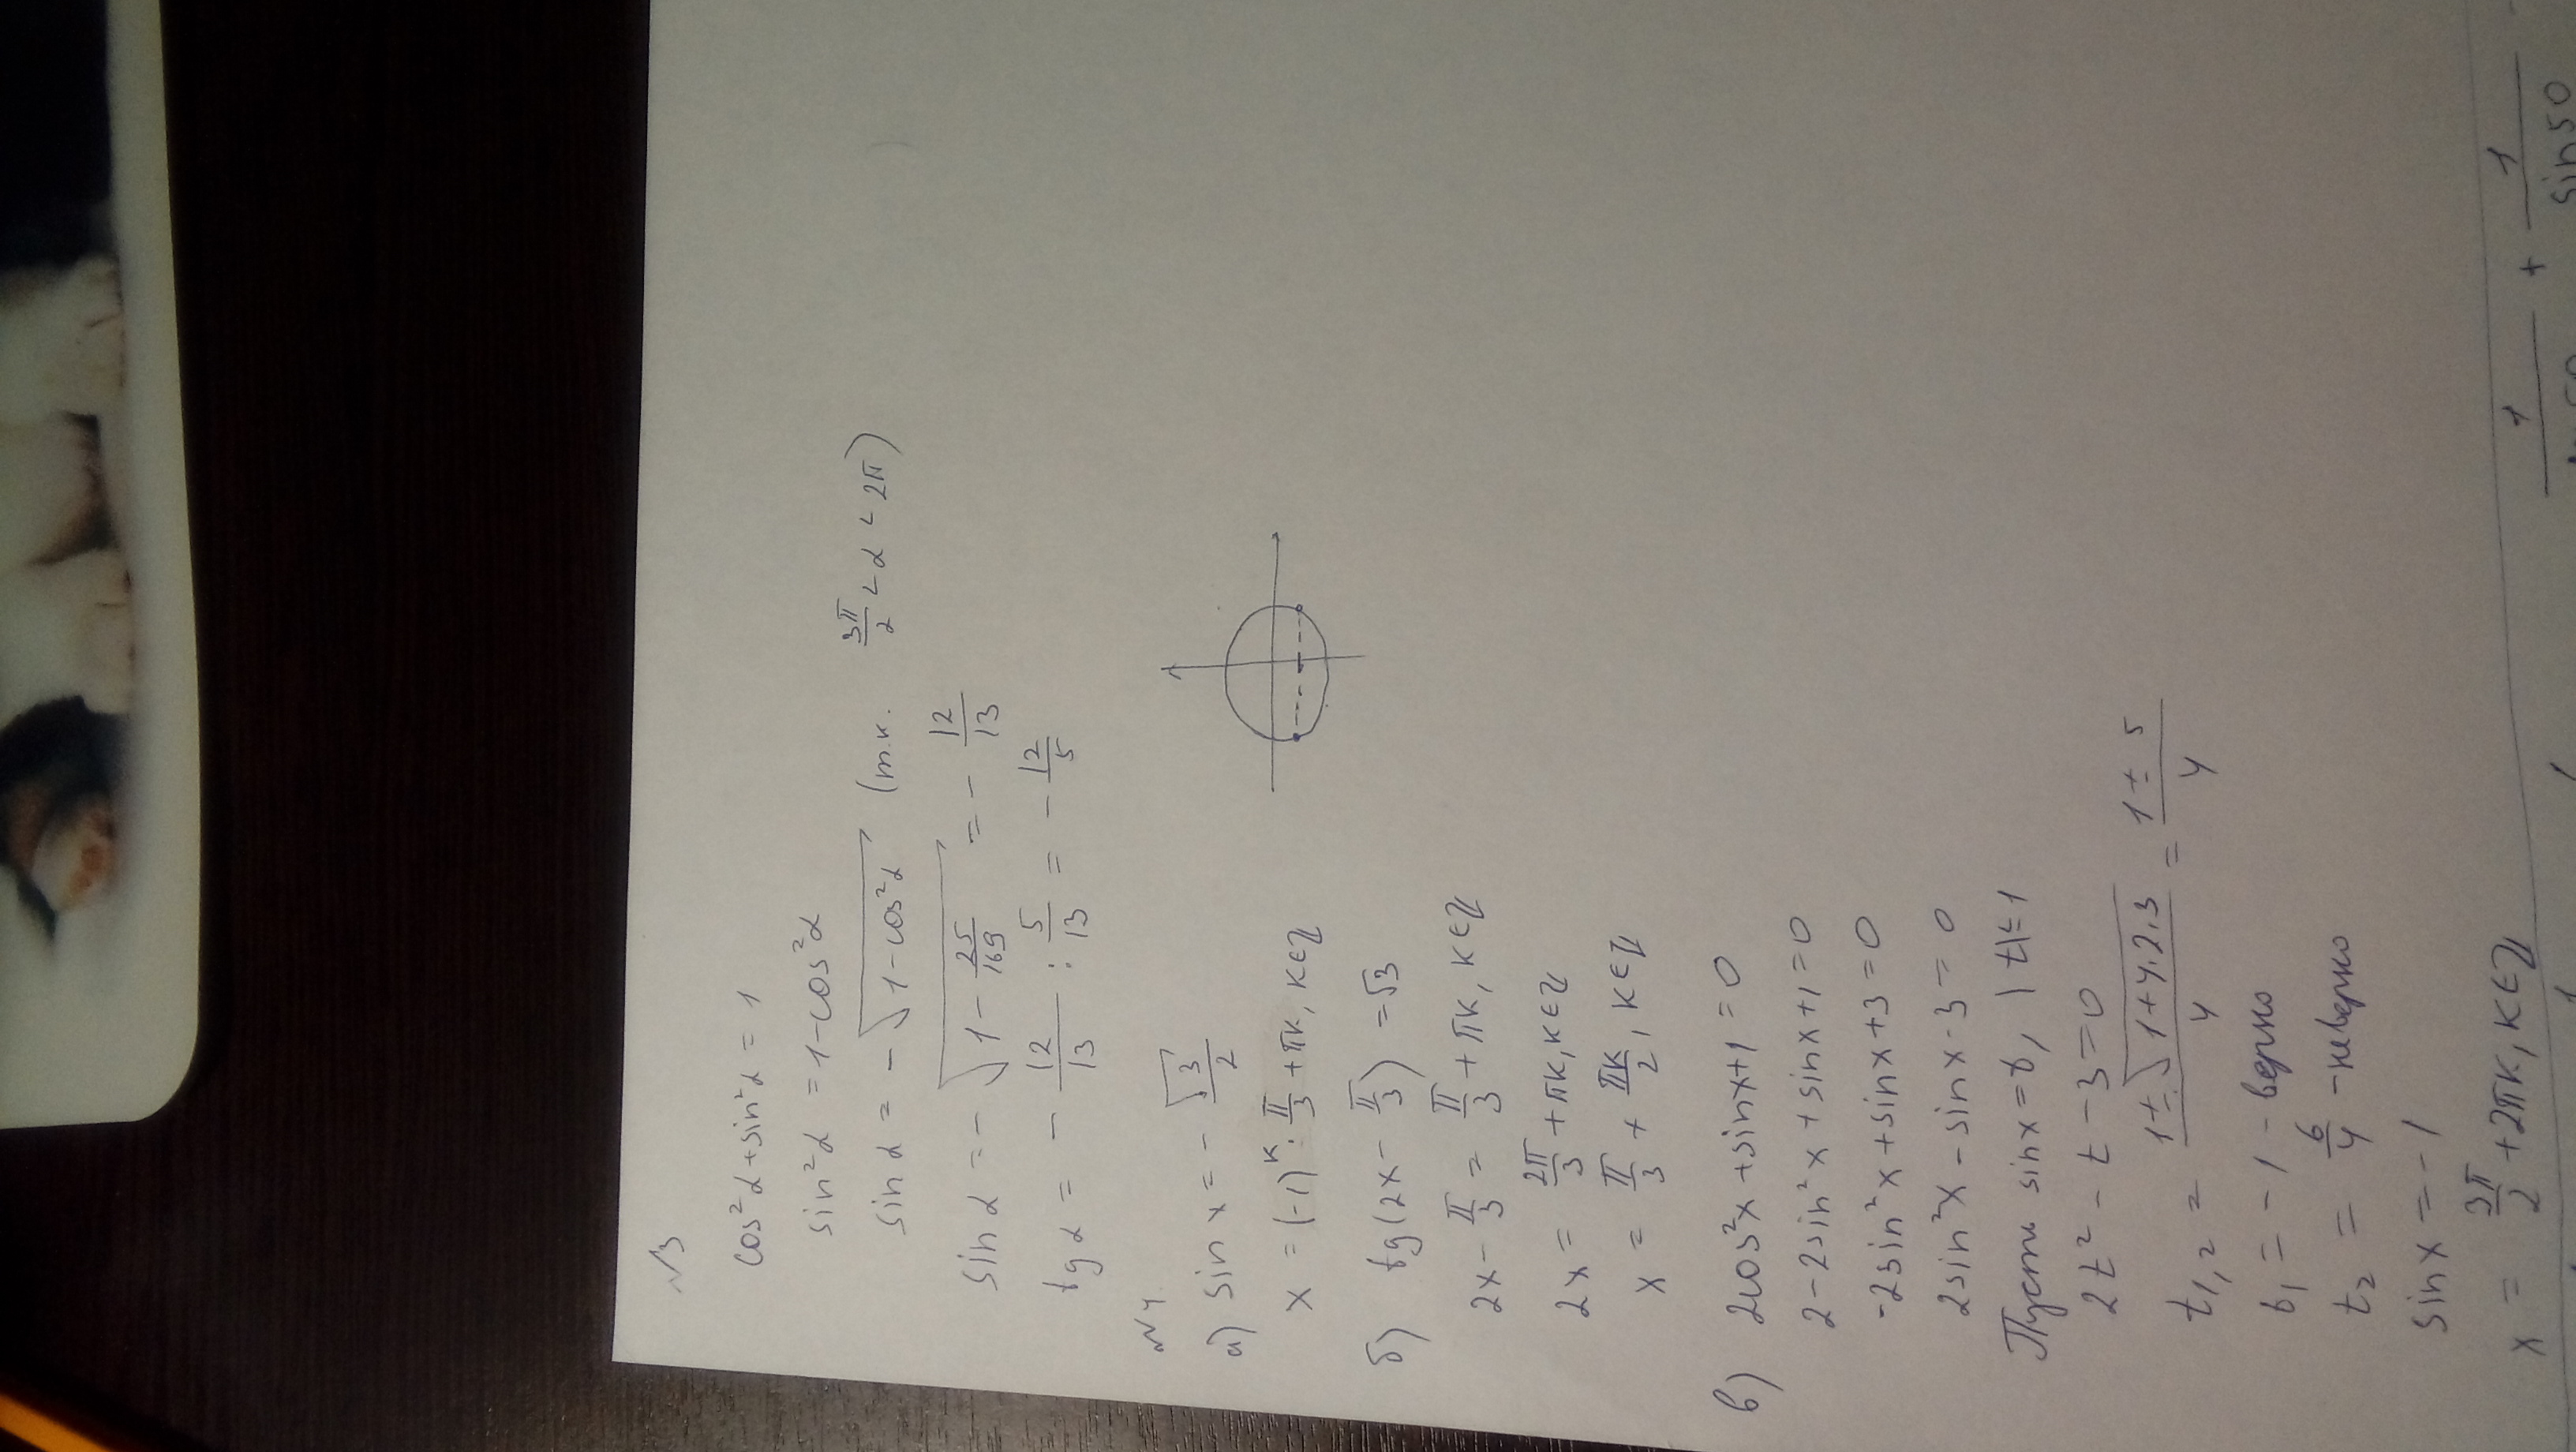 №3
cos²α+sin²α=1
sin²α=1-cos²α
sinα=-√(1-cos²α) (т.к. 3π/2<α<2π)
sinα=-√(1-25/169)=-12/13
tgα=-12/13:5/13=-12/5
№4
а) sin x=-√3/2
x=(-1)ᵏ·π/3+πk, k∈ℤ
б) tg(2x-π/3)=√3
2x-π/3=π/3+πk, k∈ℤ
2x=2π/3+πk, k∈ℤ
x=π/3+πk/2, k∈ℤ
в) 2cos²x+sinx+1=0
2-2sin²x+sinx+1=0
-2sin²x+sinx+3=0
2sin²x-sinx-3=0
Пусть sinx=t, |t|≤1
2t²-t-3=0
t₁,₂=(1±√(1+4·2·3))/4=(1±5)/4
t₁=-1-верно
t₂=6/4-неверно
sinx=-1
x=3π/2+2πk, k∈ℤ
1 + 1
sin50